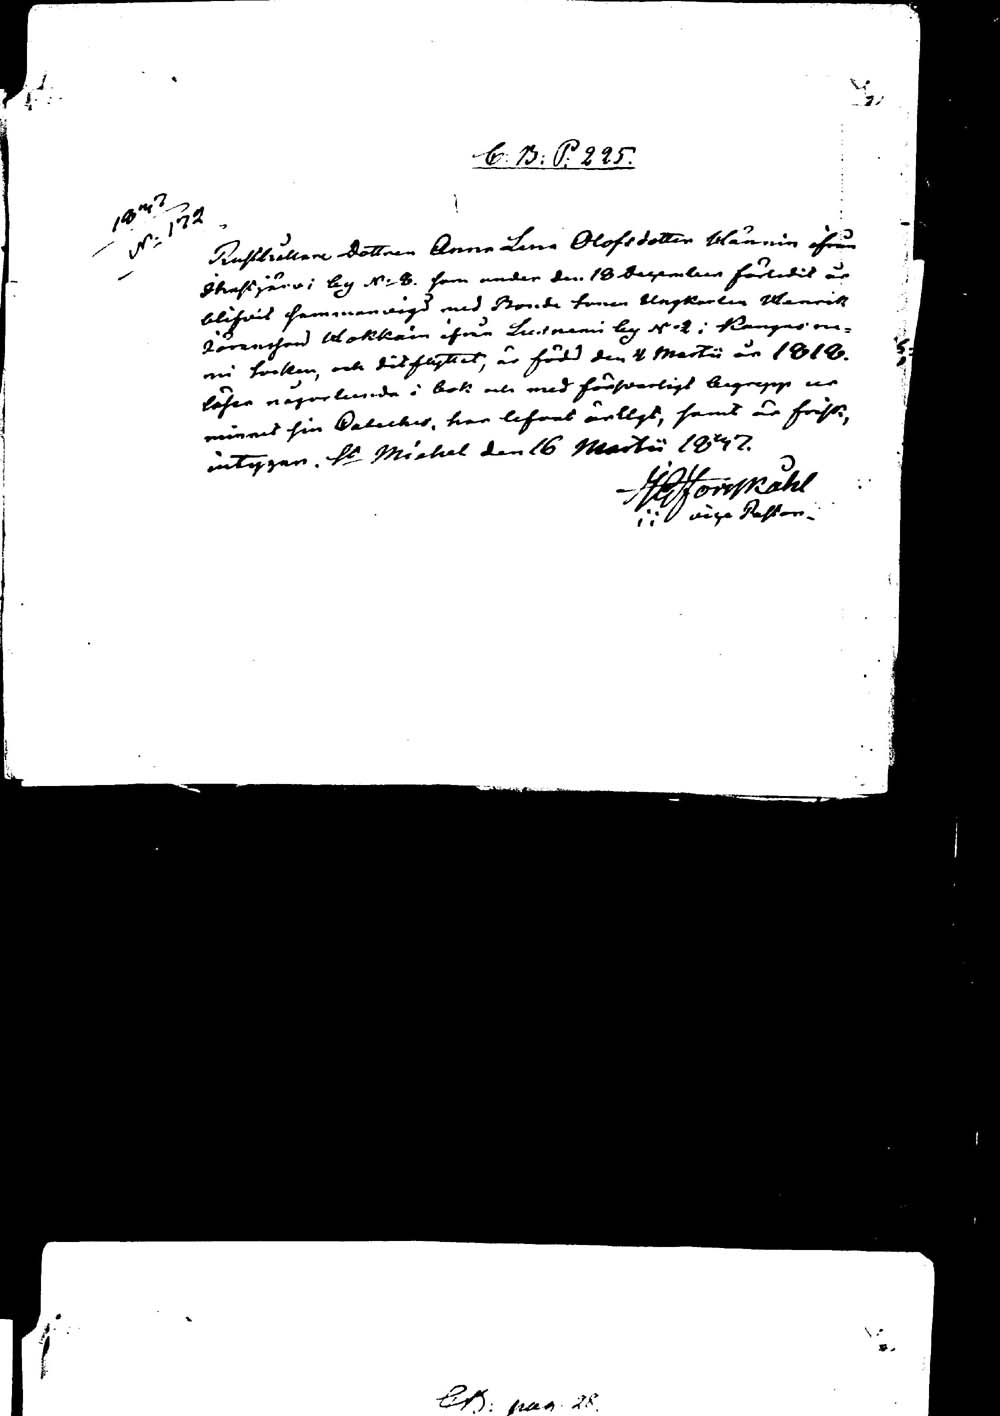 C. B: P. 225.
1847
N: 172
Rusthållare Dottren Anna Lena Olofsdotter Männin ifrån
by N: 8. som under den 18 December förledit år
blifvit sammanvigd med Bonde Sonen Ungkarlen Henrik
Göransson Wokkain ifrån by N: 2 i Kangasnie-
mi Socken, och ditflyttat, är född den 4 Martii år 1818.
läser någorlunda i bok och med försvarligt begrepp ur
minnet sin Cateches, har lefvat ärligt, samt är frisk,
intygar. St Michel den 16 Martii 1847.
Forsskåhl
vice Pastor.
CB: pag. 28.